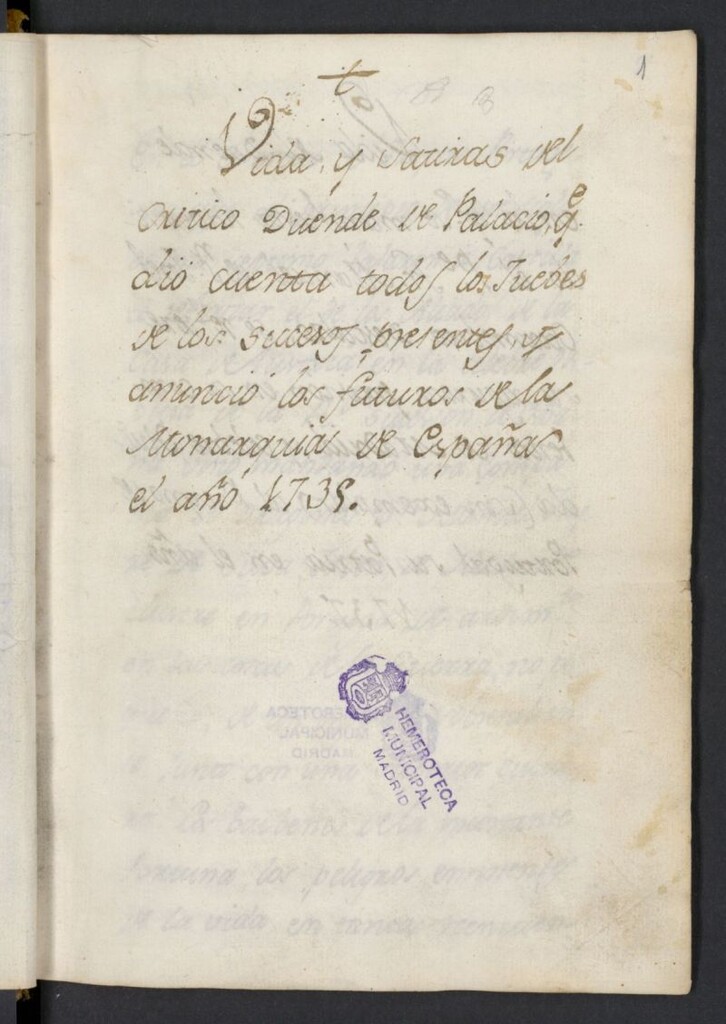 1
Vida, y Satiras del
Critico Duende de Palacio, q.e
dio cuenta todos los Juebes
de los sucesos presentes, y
anunció los futuros de la
Monarquia de España
el año 1735.
HEMEROTECA
MUNICIPAL
MADRID